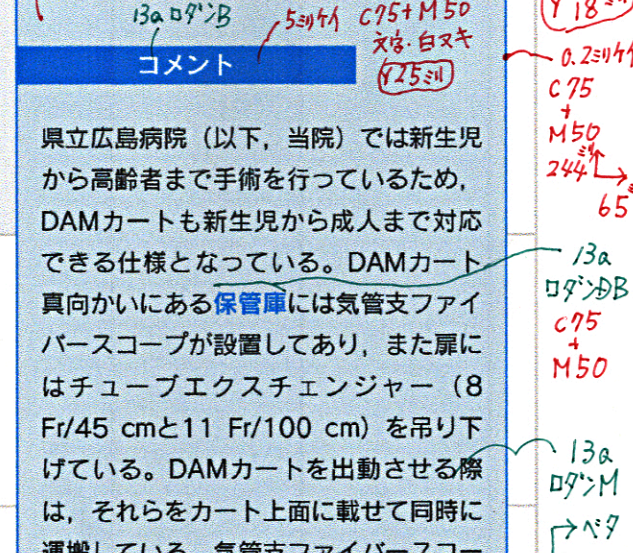 13a ロダンB
5ミリケイ C75+M50
文字・白ヌキ
Y25ミリ
Y18ミリ
コメント
0.2ミリケイ
C75
+
M50
244ミリ
65
県立広島病院（以下，当院）では新生児
から高齢者まで手術を行っているため，
DAMカートも新生児から成人まで対応
できる仕様となっている。DAMカート
真向かいにある保管庫には気管支ファイ
バースコープが設置してあり，また扉に
はチューブエクスチェンジャー（8
Fr/45 cmと11 Fr/100 cm）を吊り下
げている。DAMカートを出動させる際
は，それらをカート上面に載せて同時に
運搬している。気管支ファイバースコー
13a
ロダンDB
C75
+
M50
13a
ロダンM
→ベタ